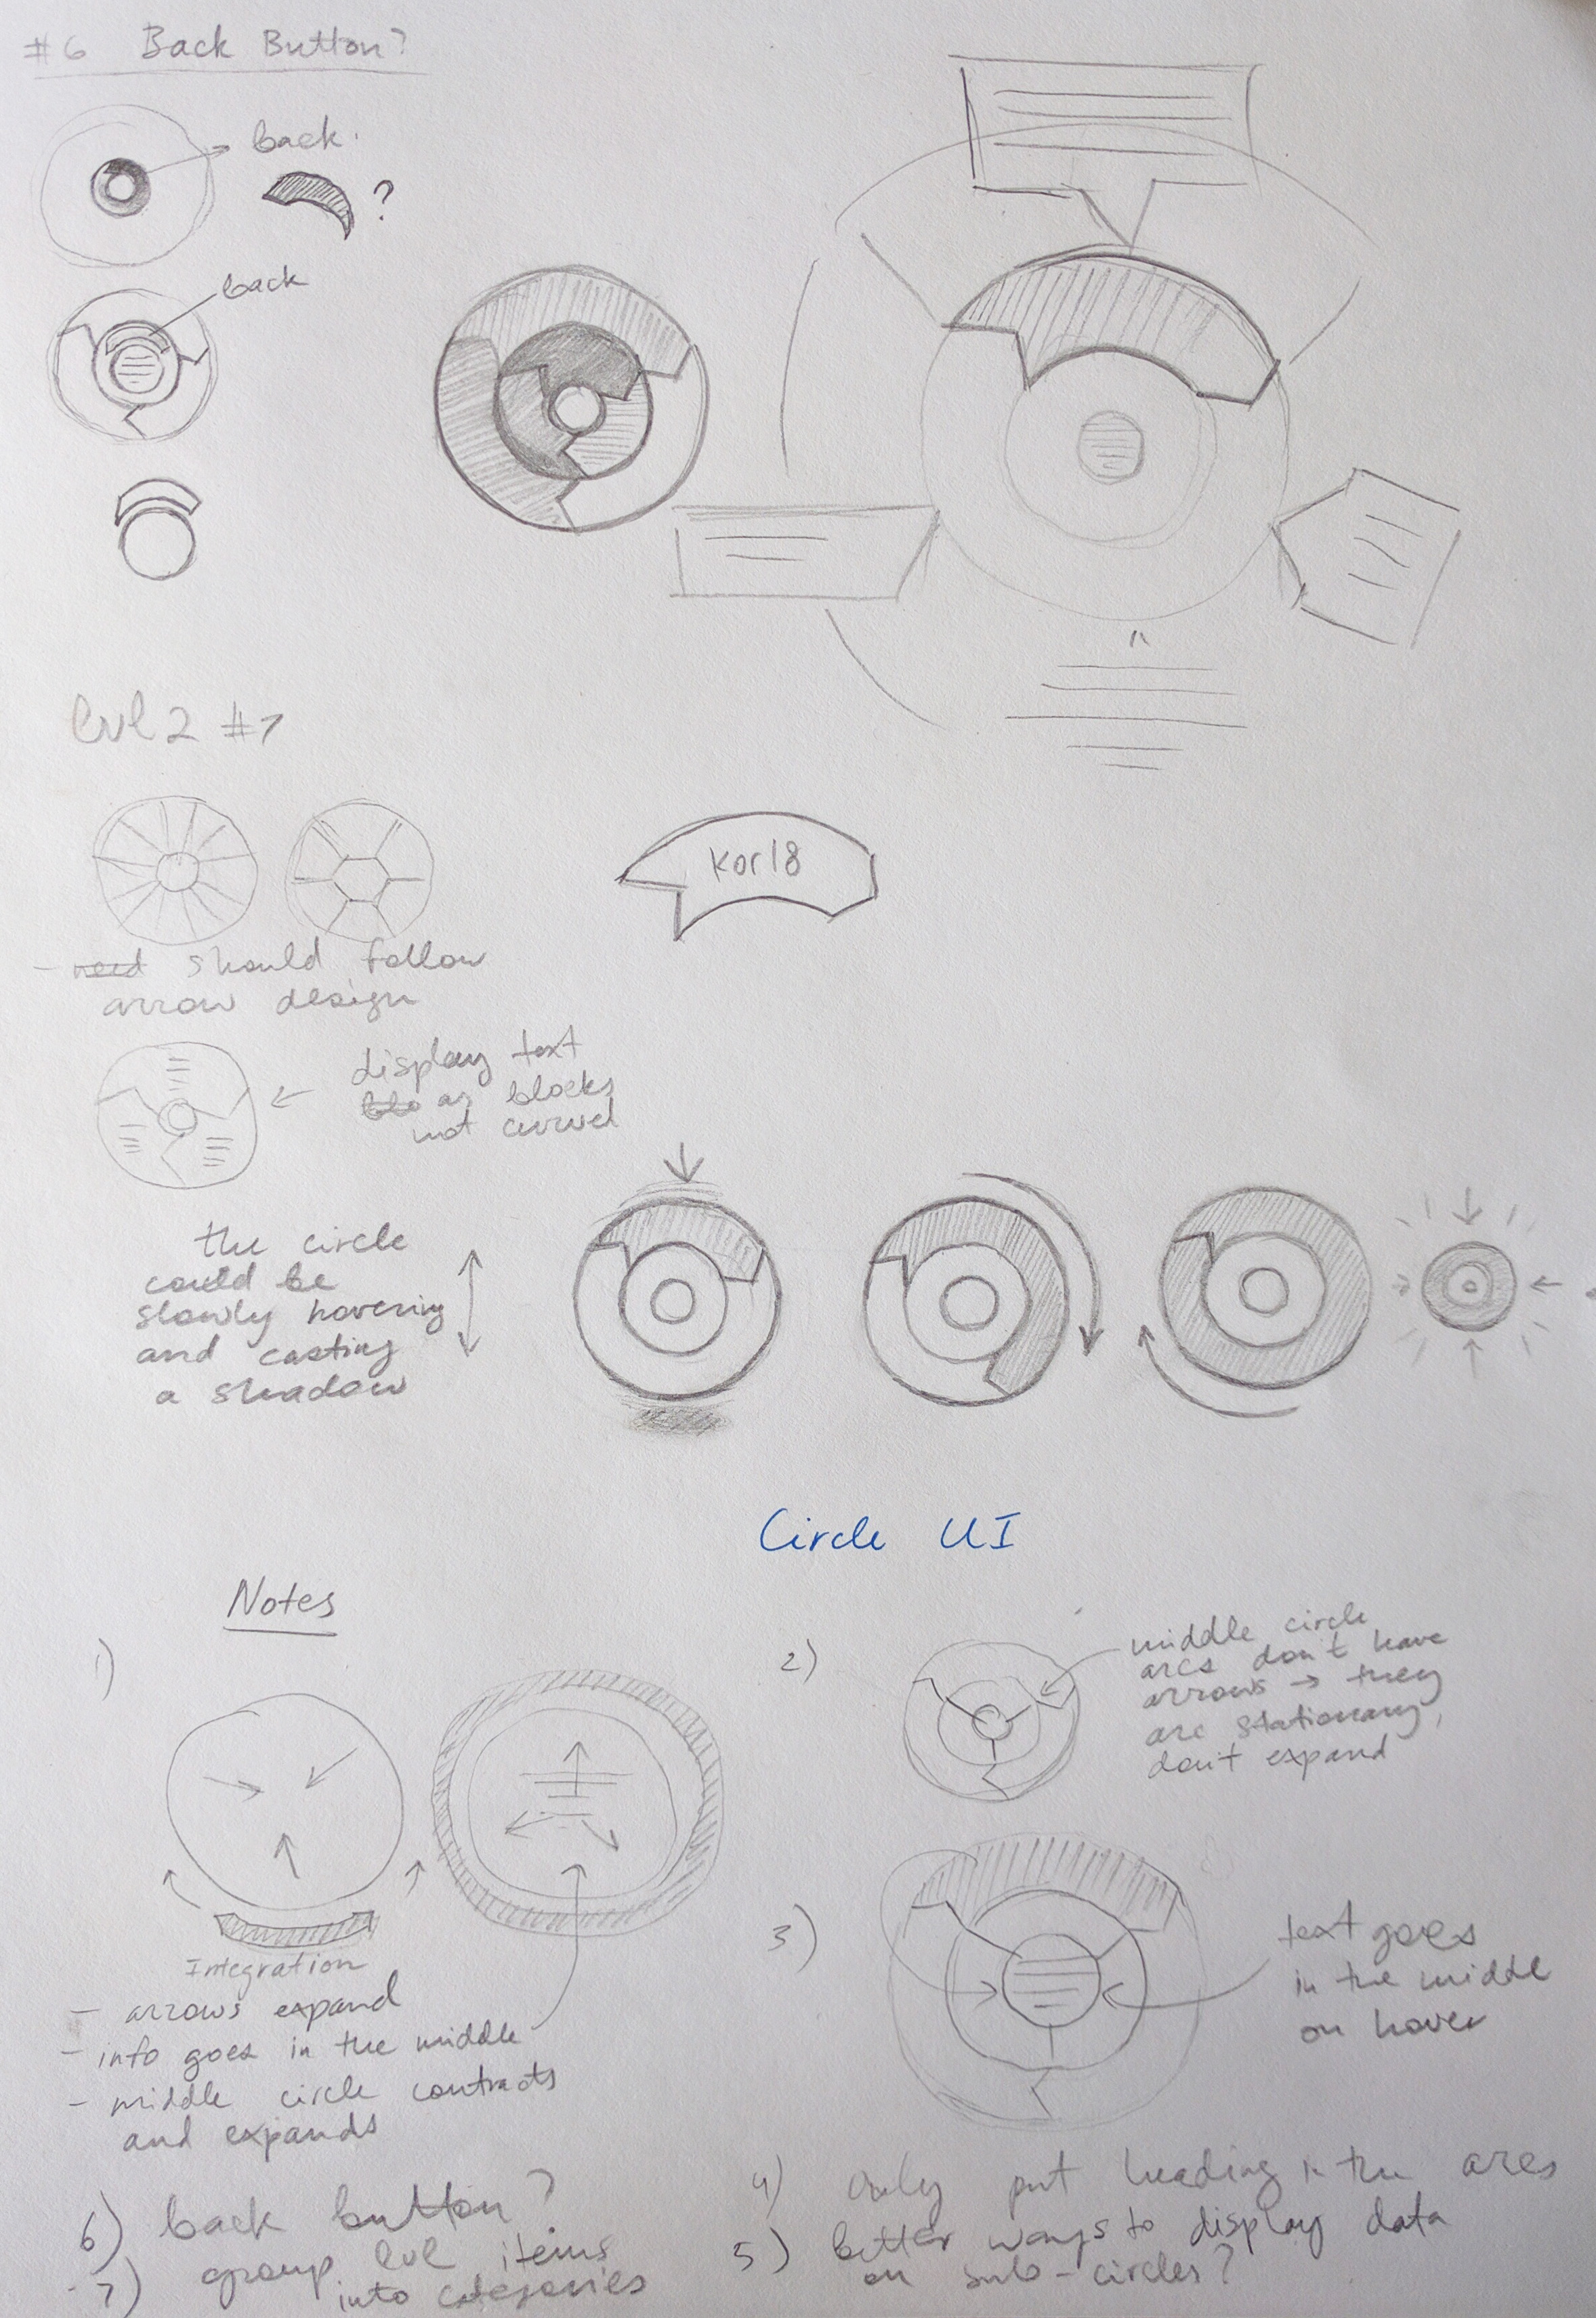 #6 Back Button?
back
?
back
lvl 2 #7
kor18
- need should follow
arrow design
display text
blo as blocks
not curved
the circle
could be
slowly hovering
and casting
a shadow
Circle UI
Notes
1)
Integration
- arrows expand
- info goes in the middle
- middle circle contracts
and expands
2)
middle circle
arcs don't have
arrows → they
are stationary,
don't expand
3)
text goes
in the middle
on hover
4) only put heading in the arcs
5) better ways to display data
on sub-circles?
6) back button?
7) group lvl items
into categories